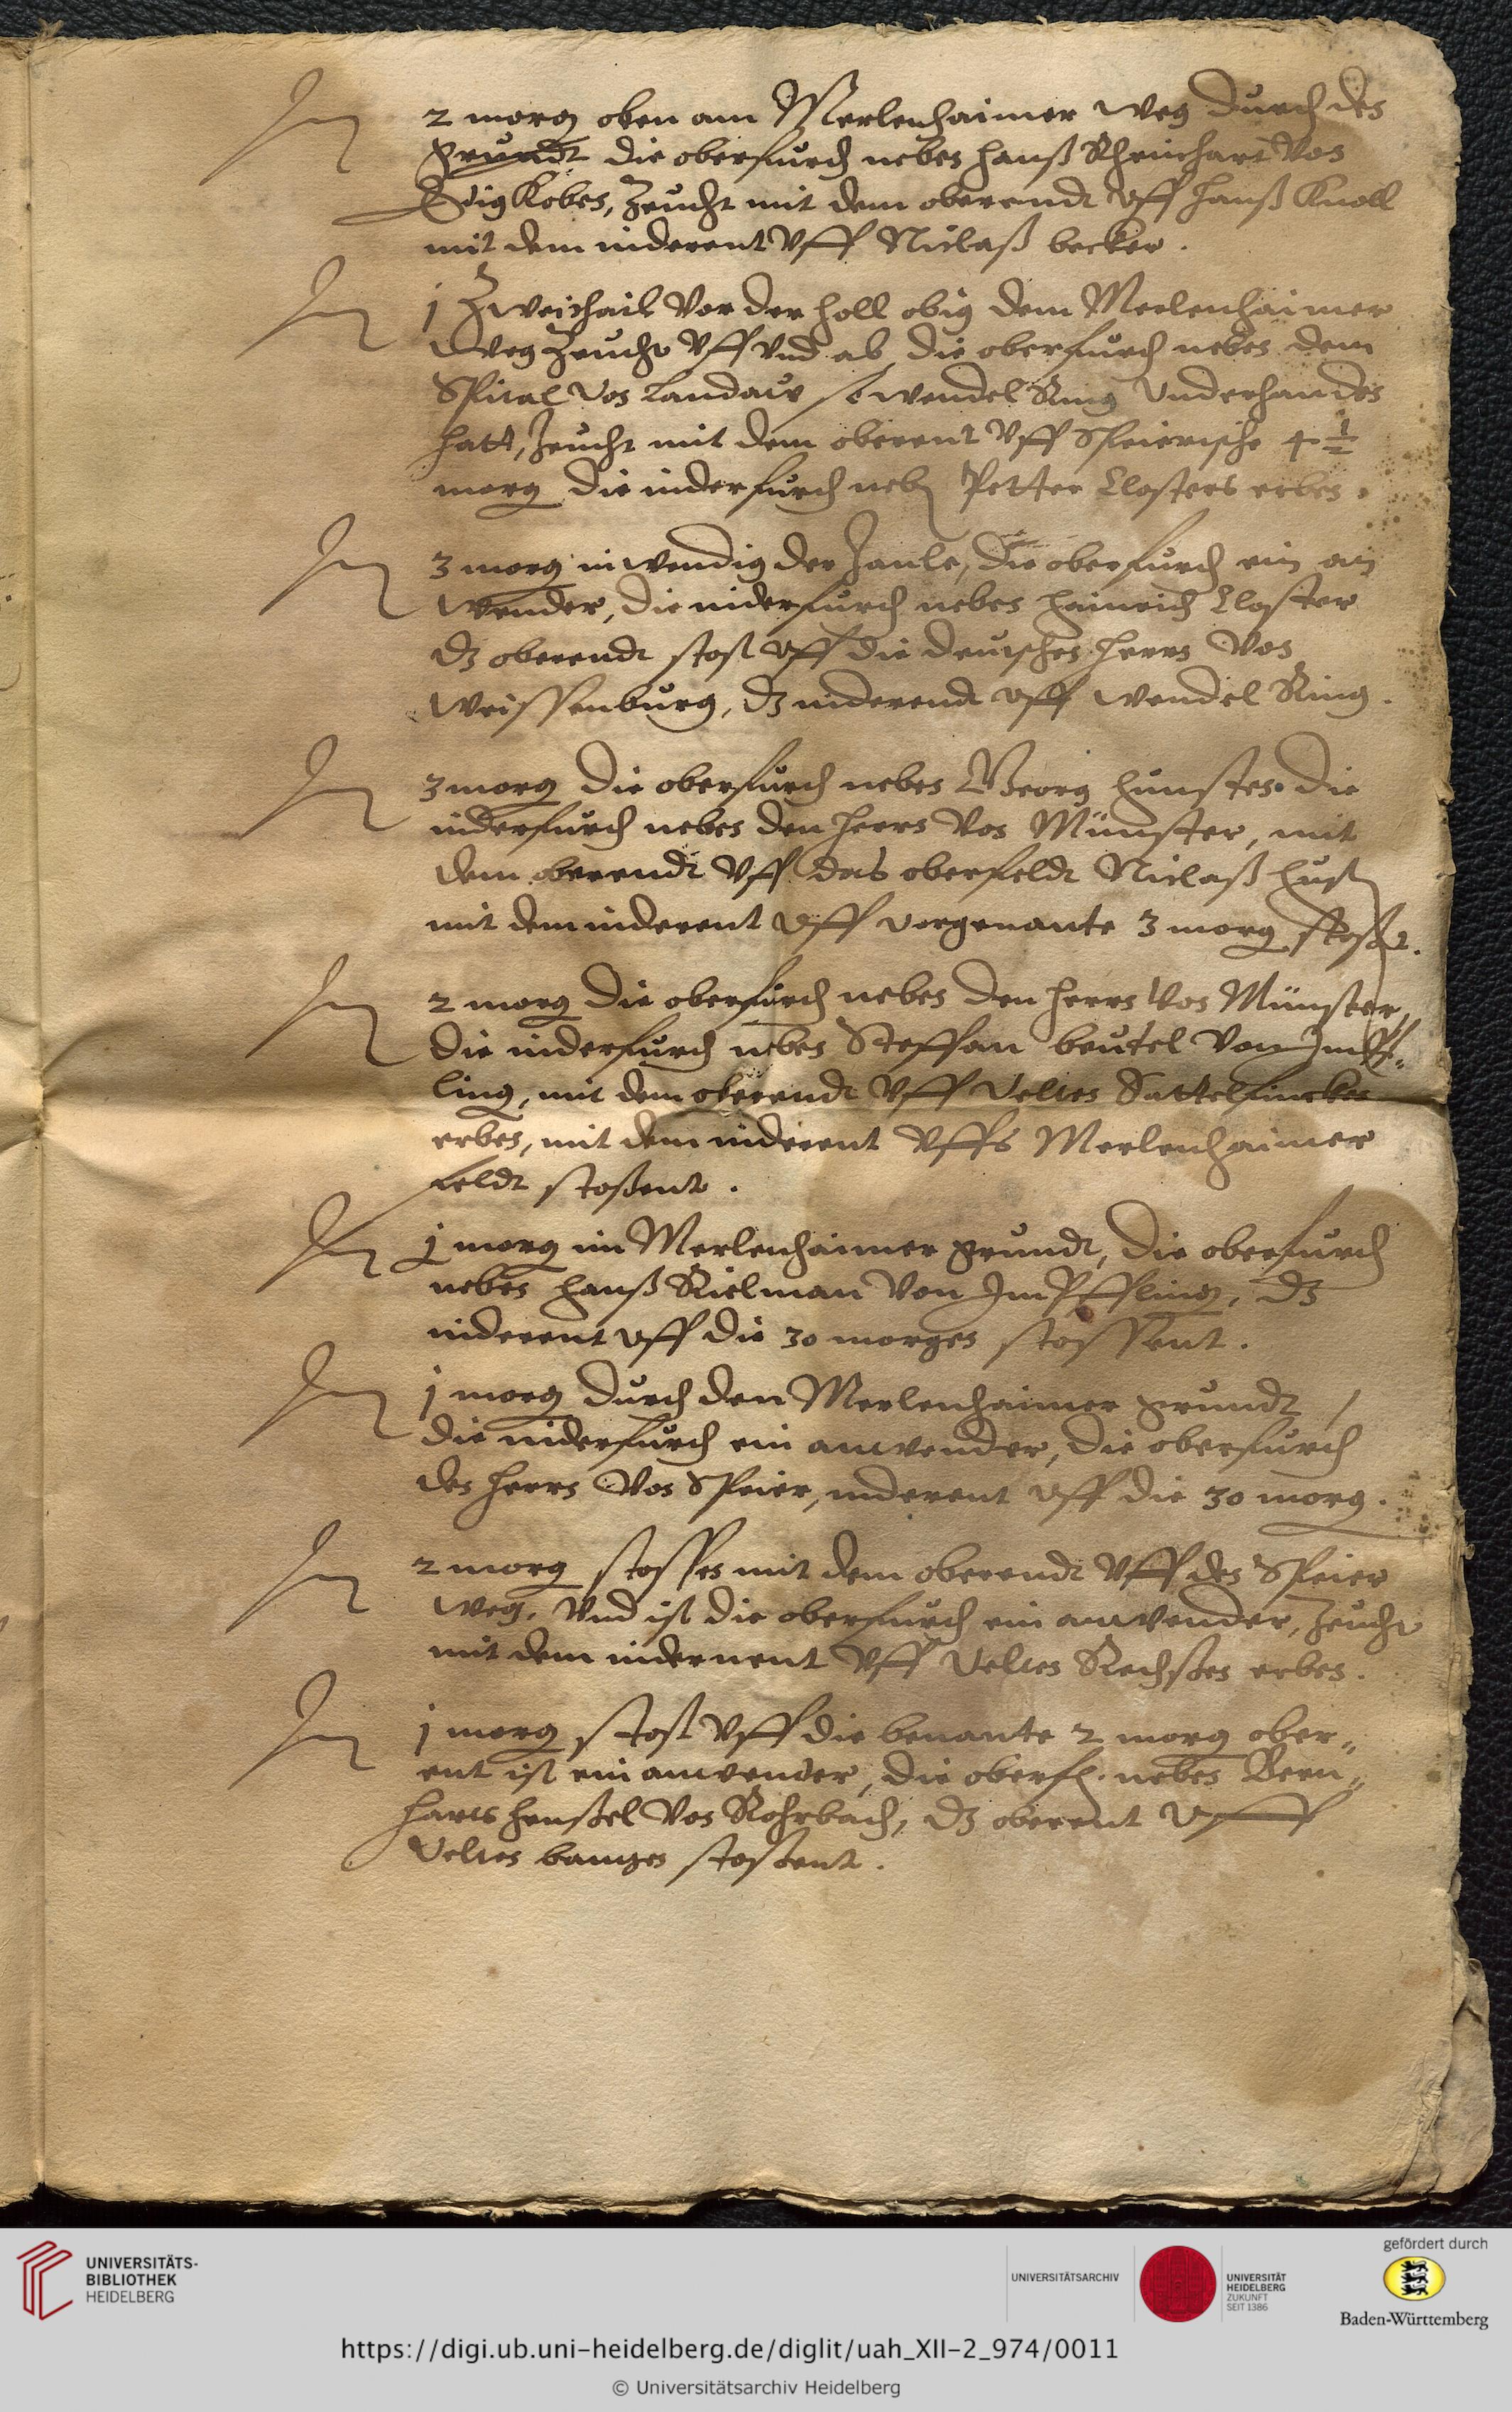 Jtem 2 morg oben am Merlenhaimer weg durch des
grundt die oberfurch neben hanß Reinhart von
Kobes, Zeucht mit dem oberendt Vff hanß Knoll
mit dem niderent Vff Niclaß becker.
Jtem 1 Zweithail Vor der holl obig dem Merlenhaimer
weg Zeucht Vff vnd ab die oberfurch neben dem
Spital von Landaw so wendel King Vnderhanden
hatt, Zeucht mit dem oberent Vff Speierische 4 1/2
morg die niderfurch neben Petter Closters erben.
Jtem 3 morg inwendig der Zaule, die oberfurch ein an
wender, die niderfurch neben hainrich Closter
dz oberendt stost vff die deutschen herrn Von
Weissenburg, dz niderendt vff wendel King.
Jtem 3 morg die oberfurch neben Georg die
niderfurch neben den herrn Von Münster, mit
dem oberendt Vff das oberfeldt Niclaß
mit dem niderent Vff vorgenante 3 morg stossent.
Jtem 2 morg die oberfurch neben den herrn Von Münster,
die niderfurch neben Steffan beutel Von Impff-
ling, mit dem oberendt Vff Velten Sattelfincken
erben, mit dem niderent Vffs Merlenhaimer
feldt stossent.
Jtem 1 morg im Merlenhaimer grundt, die oberfurch
neben hanß Kielman Von Jmpffling, dz
niderent vff die 30 morgen stossent.
Jtem 1 morg durch den Merlenhaimer grundt /
die niderfurch ein anwender, die oberfurch
den herrn Von Speier, niderent vff die 30 morg.
Jtem 2 morg stossen mit dem oberendt Vff den Speier
weg, Vnd ist die oberfurch ein anwender, Zeucht
mit dem niderent Vff Velten erben.
Jtem 1 morg stost Vff die benante 2 morg ober-
ent ist ein anwender, die oberf. neben Bern-
harts henssel Von Rohrbach, dz oberent Vff
Velten stossent.
UNIVERSITÄTS-
BIBLIOTHEK
HEIDELBERG
UNIVERSITÄTSARCHIV
UNIVERSITÄT
HEIDELBERG
ZUKUNFT
SEIT 1386
gefördert durch
Baden-Württemberg
https://digi.ub.uni-heidelberg.de/diglit/uah_XII-2_974/0011
© Universitätsarchiv Heidelberg